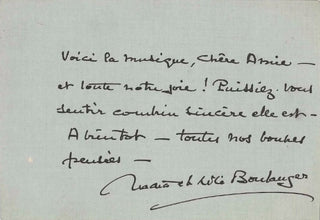 Voici la musique, chère Amie —
et toute notre joie ! Puissiez-vous
sentir combien sincère elle est —
A bientôt — toutes nos bonnes
pensées —
Nadia et Lili Boulanger